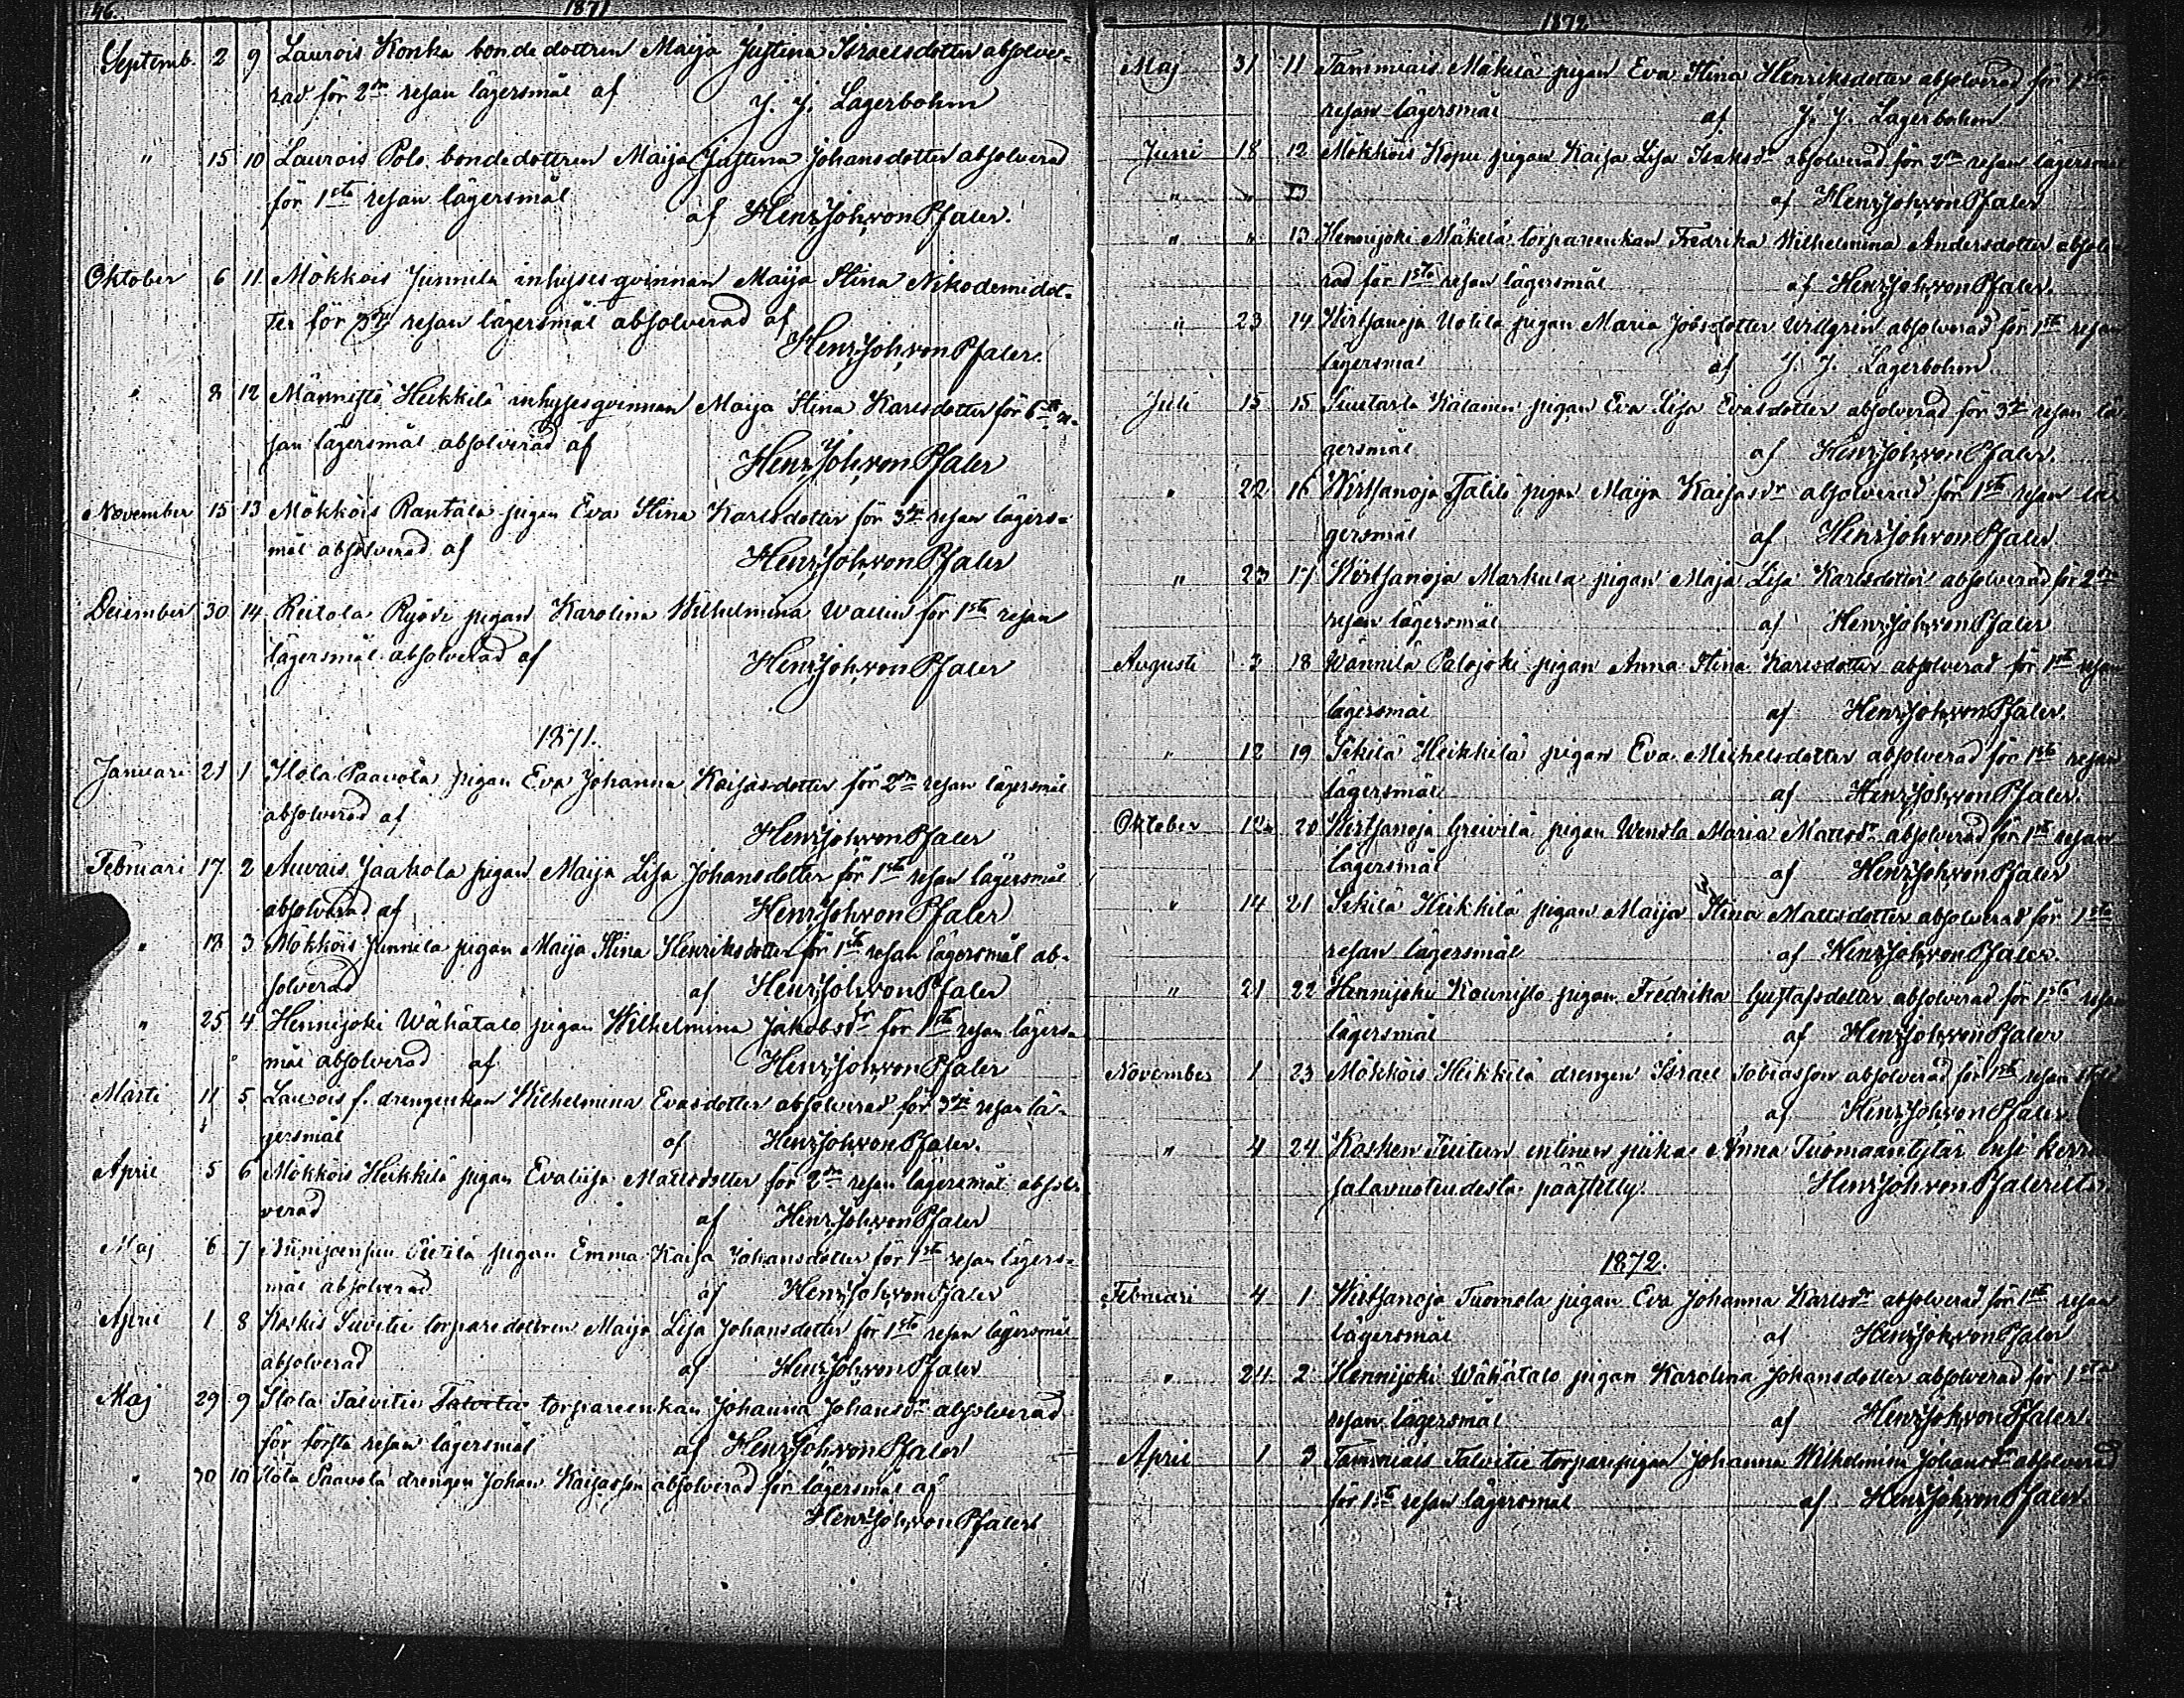 46. 1871
Septemb. 2 9 Laurois Konka bondedottren Maija Justina Israelsdotter absolve-
rad för 2dra resan lägersmål af J. J. Lagerbohm
" 15 10 Laurois Polo bondedottren Maija Justina Johansdotter absolverad
för 1sta resan lägersmål af Henr. Joh. von Pfaler.
Oktober 6 11 Mökköis Junnila inhysesqvinnan Maija Stina Nikodemidot-
ter för 3dje resan lägersmål absolverad af
Henr. Joh. von Pfaler.
" 8 12 Männistö Heikkilä inhysesqvinnan Maija Stina Karlsdotter för 6te re-
san lägersmål absolverad af
Henr. Joh. von Pfaler
November 15 13 Mökköis Rantala pigan Eva Stina Karlsdotter för 3dje resan lägers-
mål absolverad af Henr. Joh. von Pfaler
December 30 14 Reitola Ryövi pigan Karolina Wilhelmina Wallin för 1sta resan
lägersmål absolverad af Henr. Joh. von Pfaler
1871.
Januari 21 1 Ilola Paavola pigan Eva Johanna Kaisasdotter för 2dra resan lägersmål
absolverad af Henr. Joh. von Pfaler
Februari 17. 2 Auvais Jaakola pigan Maija Lisa Johansdotter för 1sta resan lägersmål
absolverad af Henr. Joh. von Pfaler
" 18 3 Mökköis Junnila pigan Maija Stina Henriksdotter för 1sta resan lägersmål ab-
solverad af Henr. Joh. von Pfaler
" 25 4 Hennijoki Wähätalo pigan Wilhelmina Jakobsdr för 1sta resan lägers-
mål absolverad af Henr. Joh. von Pfaler
Marti 11 5 Laurois f. drengenkan Wilhelmina Evasdotter absolverad för 3dje resan lä-
gersmål af Henr. Joh. von Pfaler.
April 5 6 Mökköis Heikkilä pigan Evaliisa Mattsdotter för 2dra resan lägersmål absol-
verad af Henr. Joh. von Pfaler
Maj 6 7 pigan Emma Kaisa Johansdotter för 1sta resan lägers-
mål absolverad af Henr. Joh. von Pfaler
April 1 8 Koskis torparedottren Maija Lisa Johansdotter för 1sta resan lägersmål
absolverad af Henr. Joh. von Pfaler
Maj 29 9 Ilola Talvitie Talvitie torpareenkan Johanna Johansdr absolverad
för första resan lägersmål af Henr. Joh. von Pfaler
" 30 10 Ilola Paavola drengen Johan Kaisasson absolverad för lägersmål af
Henr. Joh. von Pfaler
1872.
Maj 31 11 Tammiais Mäkelä pigan Eva Stina Henriksdotter absolverad för 1sta
resan lägersmål af J. J. Lagerbohm
Juni 18 12 Mökköis Kopu pigan Kaisa Lisa Isaksdr absolverad för 2dra resan lägersmål
" " 13 af Henr. Joh. von Pfaler
" " 13 Hennijoki Mäkelä torpareenkan Fredrika Wilhelmina Andersdotter absolve-
rad för 1sta resan lägersmål af Henr. Joh. von Pfaler.
" 23 14 Wirtsanoja Uotila pigan Maria Jobsdotter Willgrén absolverad för 1sta resan
lägersmål af J. J. Lagerbohm.
Juli 15 15 pigan Eva Lisa Evasdotter absolverad för 3dje resan lä-
gersmål af Henr. Joh. von Pfaler.
" 22 16 Wirtsanoja pigan Maija Kaisasdr absolverad för 1sta resan lä-
gersmål af Henr. Joh. von Pfaler
" 23 17 Wirtsanoja Markula pigan Maja Lisa Karlsdotter absolverad för 2dra
resan lägersmål af Henr. Joh. von Pfaler
Augusti 2 18 Wännilä Palojoki pigan Anna Stina Karlsdotter absolverad för 1sta resan
lägersmål af Henr. Joh. von Pfaler.
" 12 19 Sikilä Heikkilä pigan Eva Michelsdotter absolverad för 1sta resan
lägersmål af Henr. Joh. von Pfaler.
Oktober 12 20 Wirtsanoja Greivilä pigan Wendla Maria Mattsdr absolverad för 1sta resan
lägersmål af Henr. Joh. von Pfaler
" 14 21 Sikilä Heikkilä pigan Maija Stina Mattsdotter absolverad för 1sta
resan lägersmål af Henr. Joh. von Pfaler.
" 21 22 Hennijoki Kounisto pigan Fredrika Gustafsdotter absolverad för 1sta resan
lägersmål af Henr. Joh. von Pfaler
November 1 23 Mökköis Heikkilä drengen Israel Tobiasson absolverad för 1sta resan
af Henr. Joh. von Pfaler
" 4 24 Kosken entinen piika Anna Tuomaantytär
salavuoteudesta päästetty. Henr. Joh. von Pfalerilta.
1872.
Februari 4 1 Wirtsanoja Tuomola pigan Eva Johanna Karlsdr absolverad för 1sta resan
lägersmål af Henr. Joh. von Pfaler
" 24 2 Hennijoki Wähätalo pigan Karolina Johansdotter absolverad för 1sta
resan lägersmål af Henr. Joh. von Pfaler.
April 1 3 Tammiais Talvitie torparepigan Johanna Wilhelmina Johansdr absolverad
för 1sta resan lägersmål af Henr. Joh. von Pfaler